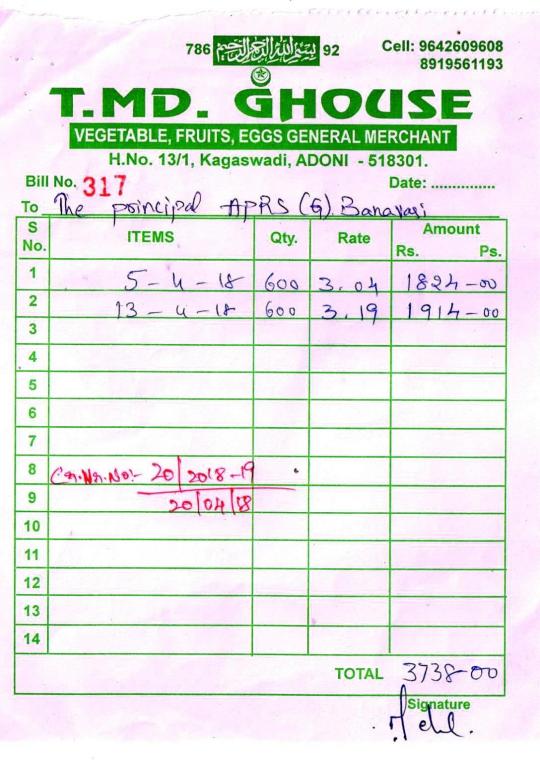 786 بسم الله الرحمن الرحيم 92
Cell: 9642609608
8919561193
T.MD. GHOUSE
VEGETABLE, FRUITS, EGGS GENERAL MERCHANT
H.No. 13/1, Kagaswadi, ADONI - 518301.
Bill No. 317 Date: ...............
To The principal APRS (G). Banavasi
S No. ITEMS Qty. Rate Amount Rs. Ps.
1 5-4-18 600 3.04 1824-00
2 13-4-18 600 3.19 1914-00
3
4
5
6
7
8 No:- 20/2018-19
9 20/04/18
10
11
12
13
14
TOTAL 3738-00
Signature